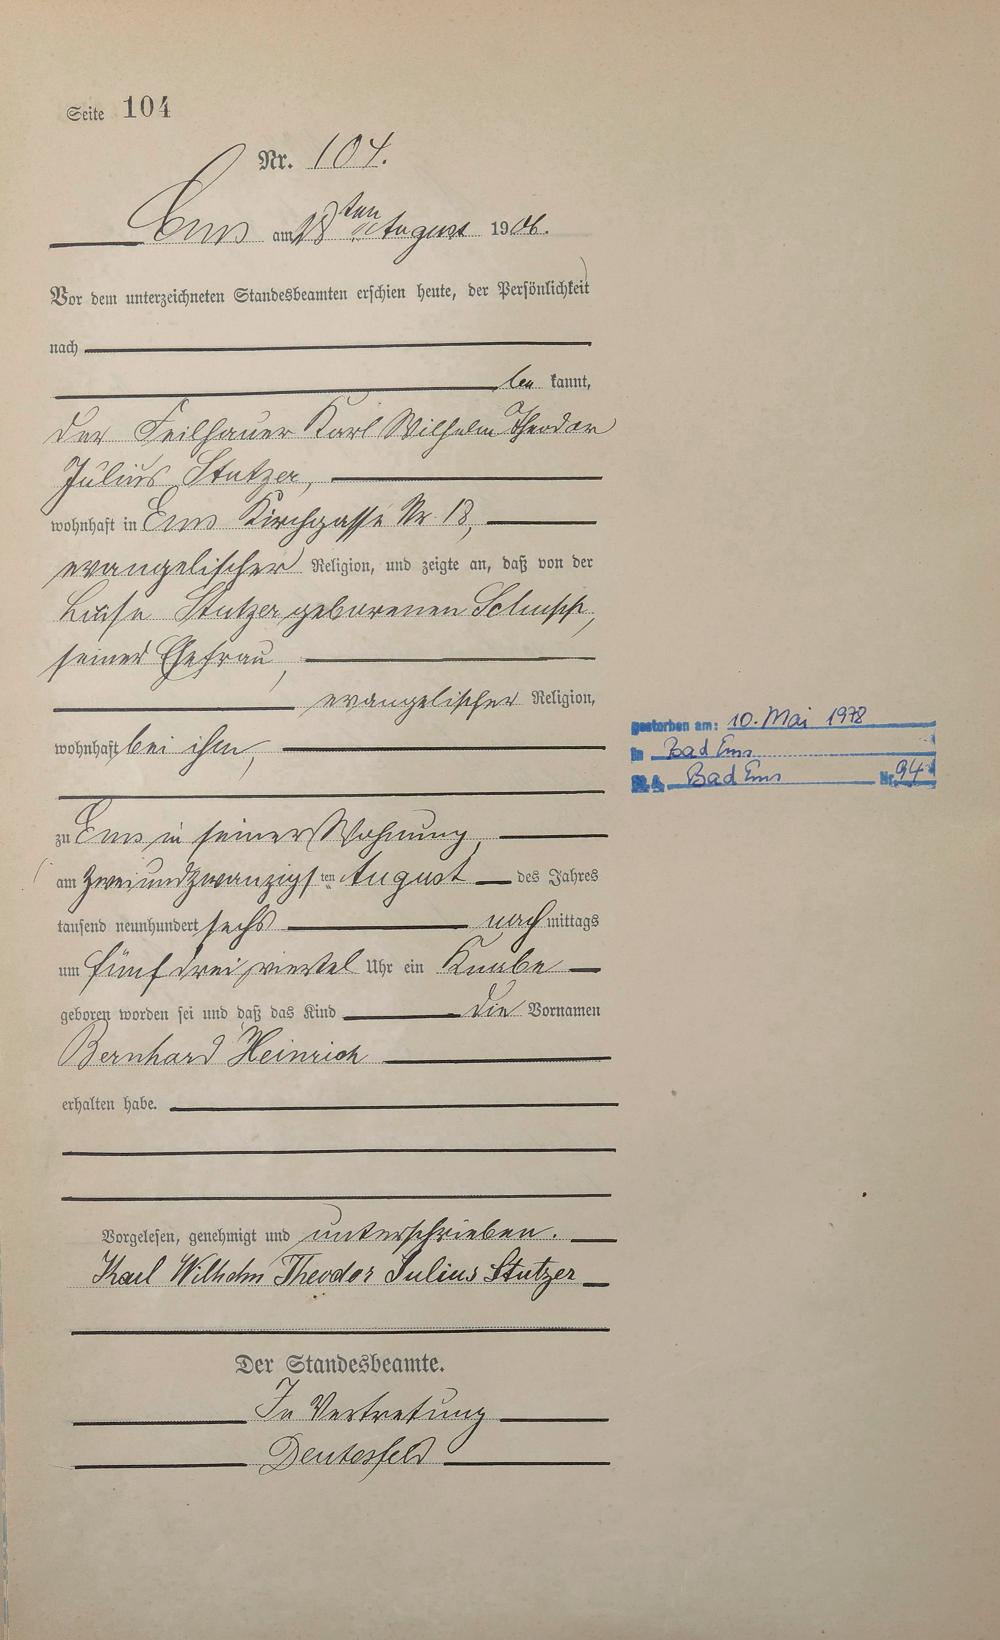 Seite 104
Nr. 104.
Ems am 28ten August 1906.
Vor dem unterzeichneten Standesbeamten erschien heute, der Persönlichkeit
nach
be kannt,
der Feilhauer Karl Wilhelm Theodor
Julius Stutzer,
wohnhaft in Ems Kirchgasse Nr 18,
evangelischer Religion, und zeigte an, daß von der
Luise Stutzer geborenen Schupp,
seiner Ehefrau,
evangelischer Religion,
wohnhaft bei ihm,
gestorben am: 10. Mai 1978
in Bad Ems
St. A. Bad Ems Nr. 94
zu Ems in seiner Wohnung,
am zweiundzwanzigsten August des Jahres
tausend neunhundert sechs nachmittags
um fünf drei viertel Uhr ein Knabe
geboren worden sei und daß das Kind die Vornamen
Bernhard Heinrich
erhalten habe.
Vorgelesen, genehmigt und unterschrieben.
Karl Wilhelm Theodor Julius Stutzer
Der Standesbeamte.
In Vertretung